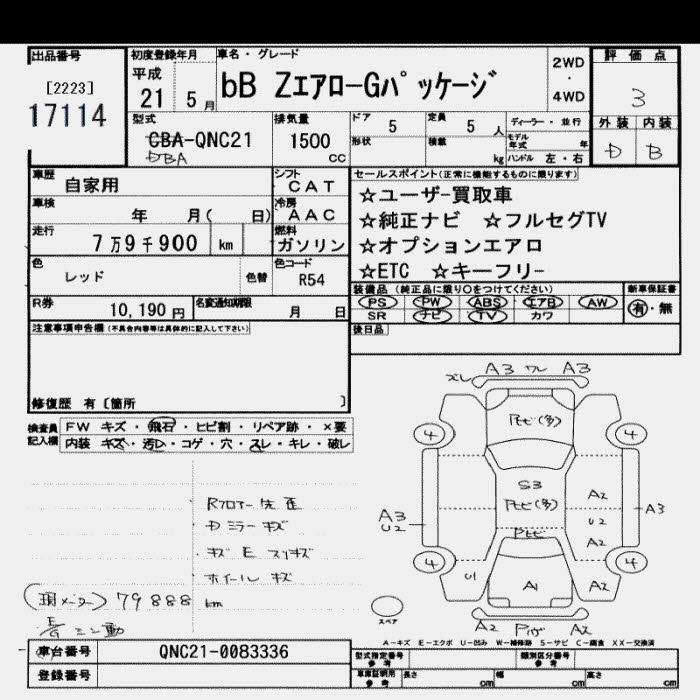 出品番号 初度登録年月 車名・グレード 評価点
[2223] 平成 bB ZエアローGパッケージ 2WD
17114 21 5月 ・ 4WD 3
型式 排気量 ドア 5 定員 5 人 ディーラー・並行 外装 内装
CBA-QNC21 1500 形状 積載 モデル年式 年 D B
DBA CC kg ハンドル 左・右
車歴 自家用 シフト CAT セールスポイント(正常に機能するものに限ります)
車検 年 月( 日) 冷房 AAC ☆ユーザー買取車
走行 7万9千900 km 燃料 ガソリン ☆純正ナビ ☆フルセグTV
色 レッド 色替 色コード R54 ☆オプションエアロ
☆ETC ☆キーフリー
R券 10,190円 名変通知期限 月 日 装備品(純正品に限り○をつけてください) 新車保証書
PS PW ABS エアB AW 有・無
SR ナビ TV カワ
注意事項申告欄(不具合内容等は具体的に記入して下さい) 後日品
修復歴 有〔箇所 〕
検査員記入欄 FW キズ・飛石・ヒビ割・リペア跡・×要
内装 キズ・汚レ・コゲ・穴・スレ・キレ・破レ
ズレ A3 ワレ A3
Pヒビ(多)
4 4
S3
Pヒビ(多)
A3 U2 A2 U2 A2 A3
Pヒビ
4 4
U1 A1 A2
A2 A2
Rフロアー
Dミラーキズ
キズ E スリキズ
ホイール キズ
(現メーター) 79888 km
スペア
A-キズ E-エクボ U-凹み W-補修跡 S-サビ C-腐食 XX-交換済
車台番号 QNC21-0083336 型式指定番号 参考 類別区分番号 参考
登録番号 車庫証明用 参考 長さ cm 幅 cm 高さ cm